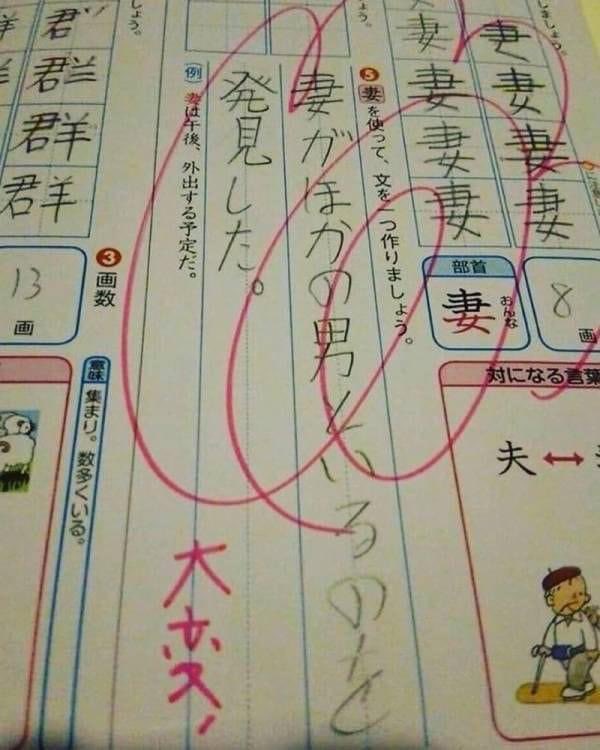 しましょう。
妻妻妻妻
妻妻妻妻
ょう。
8画
部首
妻
おんな
対になる言葉
夫↔
❺妻を使って、文を一つ作りましょう。
妻がほかの男といるのを
発見した。
例 妻は午後、外出する予定だ。
大変!
しょう。
群群群群
❸画数
13画
意味 集まり。数多くいる。